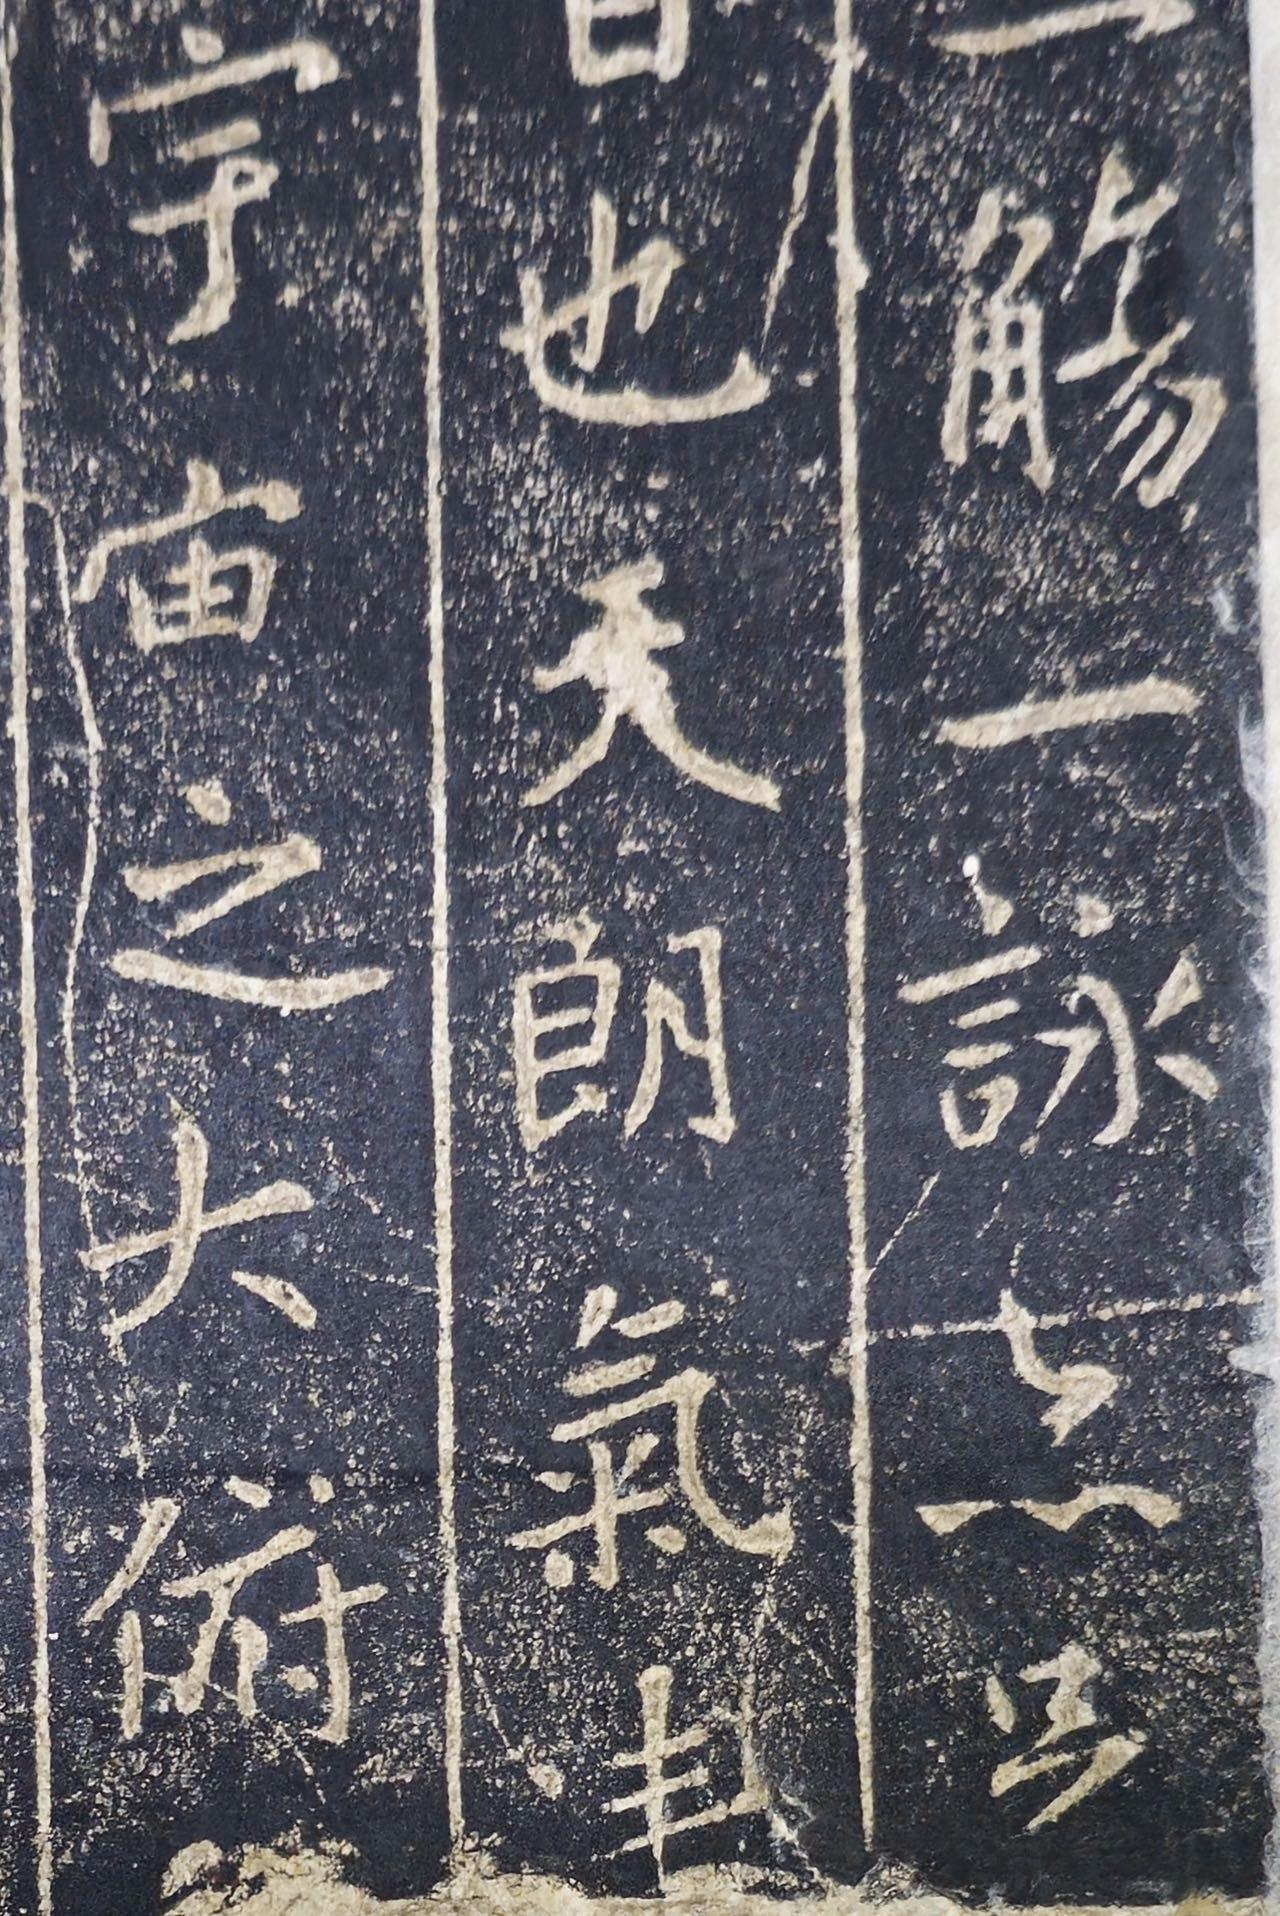 一觴一詠亦
日也天朗氣
宇宙之大俯